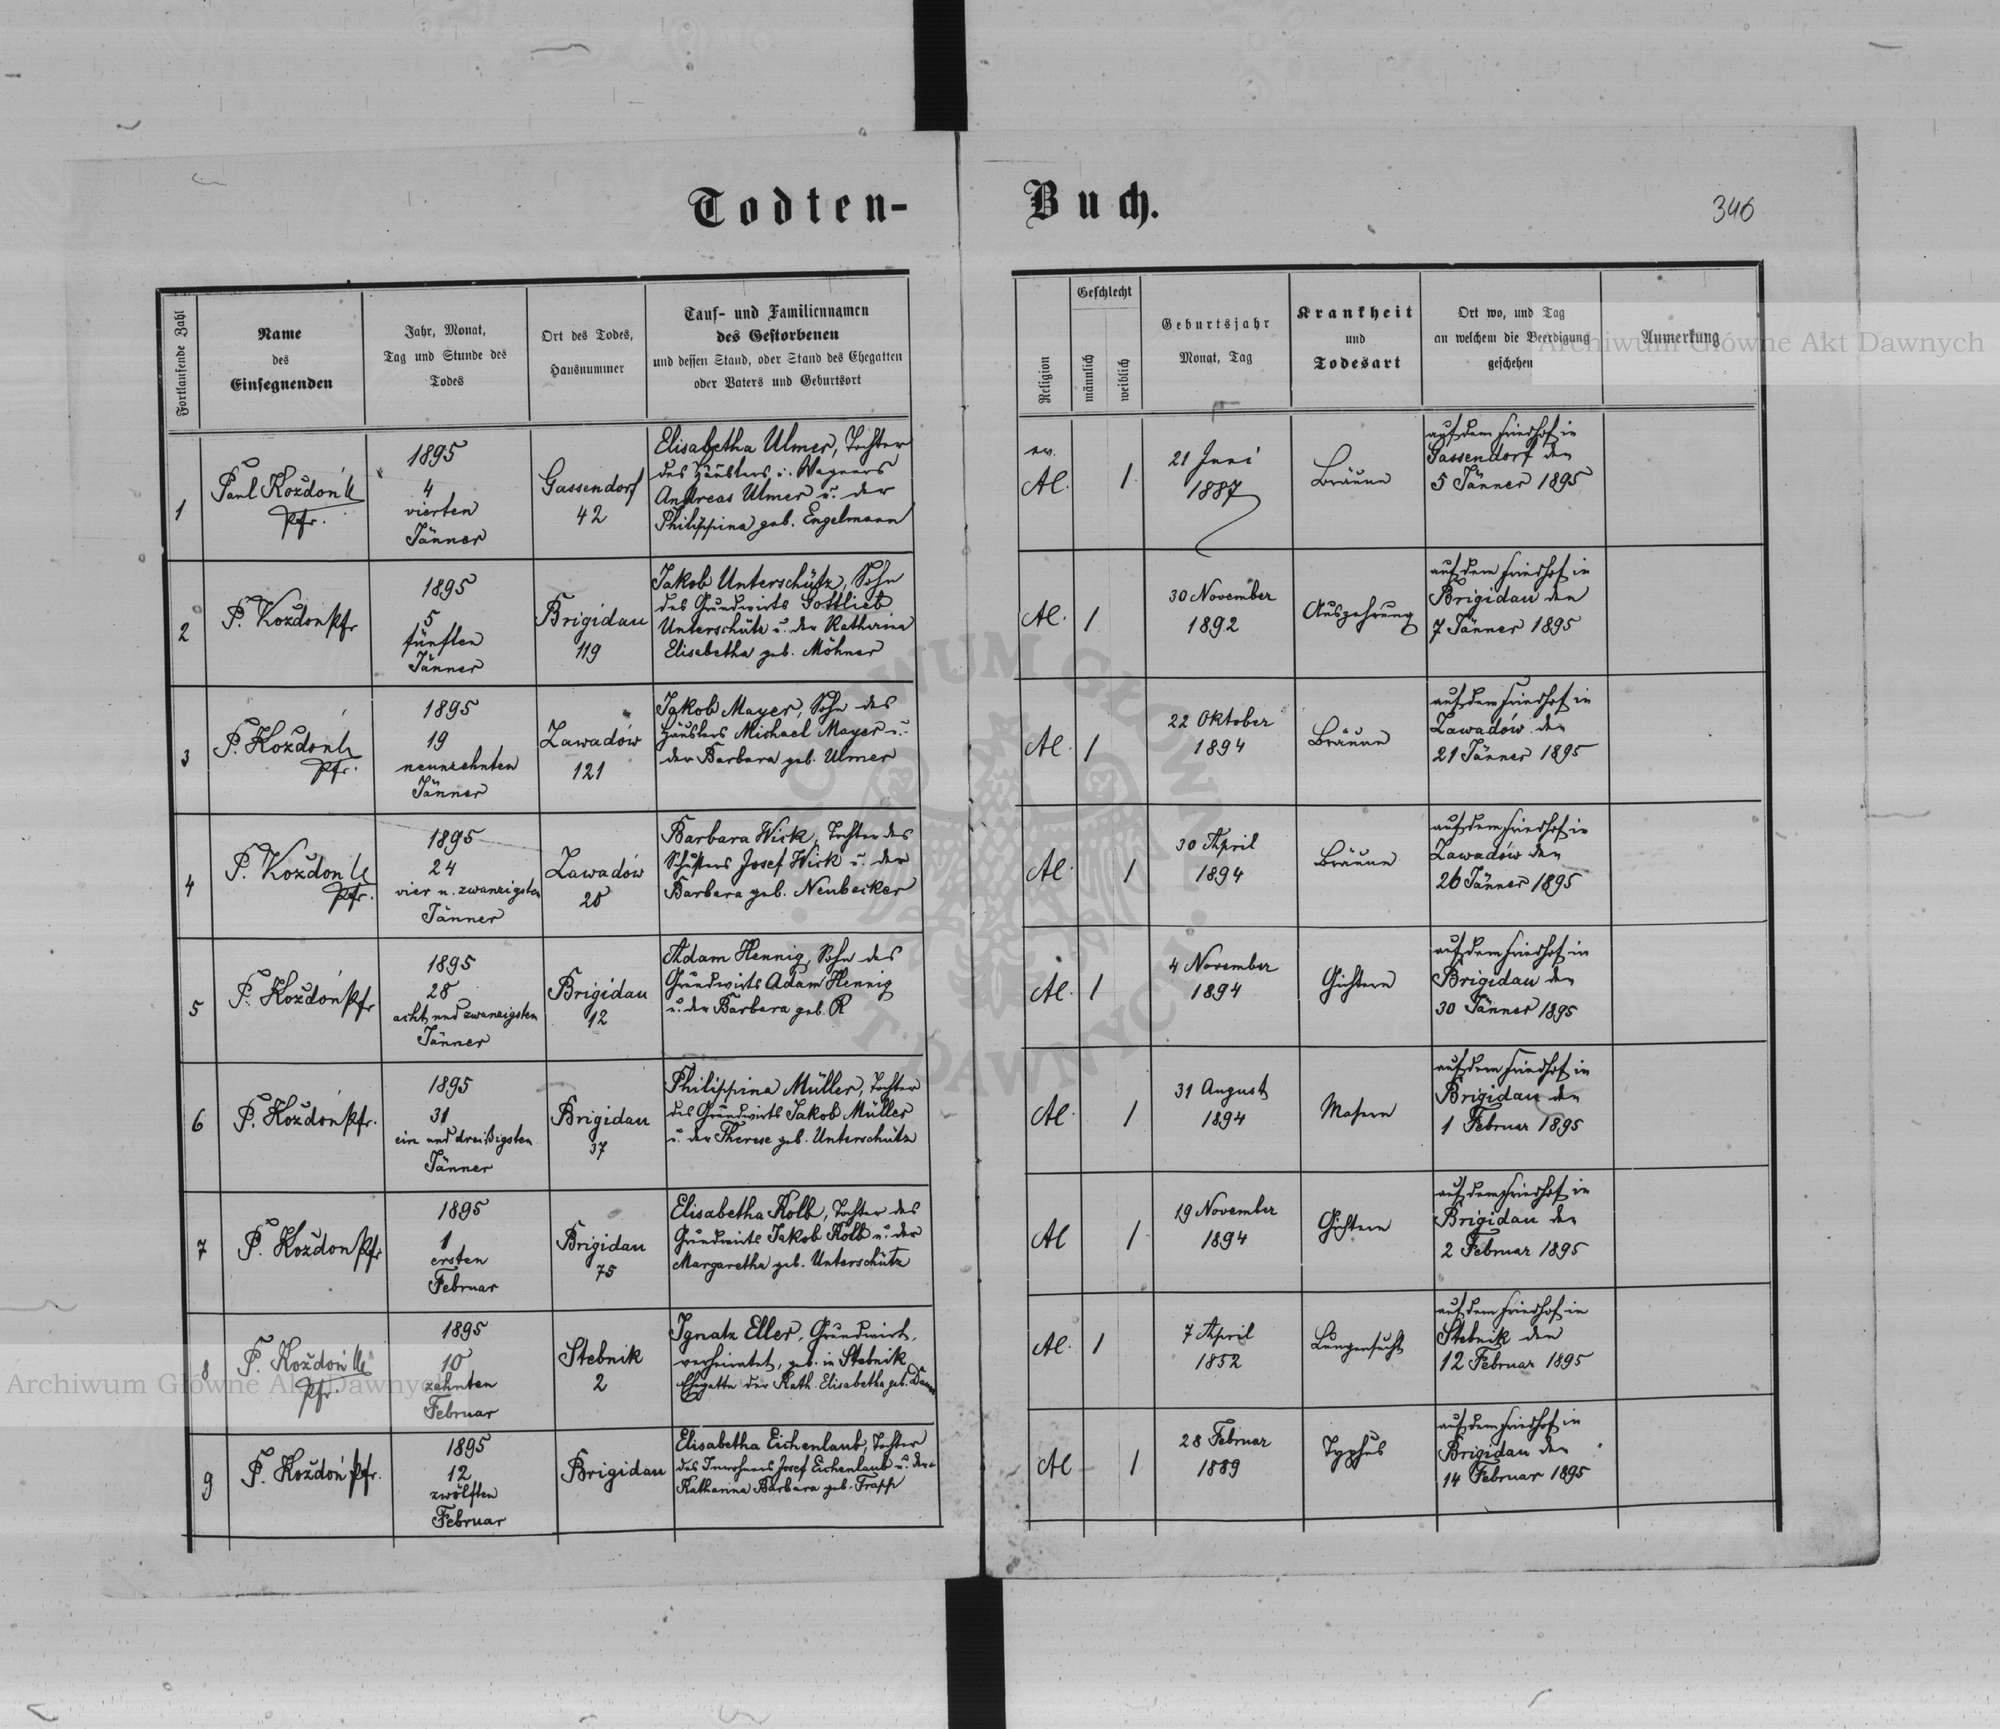 Todten-Buch.
346
Fortlaufende Zahl
Name
des
Einsegnenden
Jahr, Monat,
Tag und Stunde des
Todes
Ort des Todes,
Hausnummer
Tauf- und Familiennamen
des Gestorbenen
und dessen Stand, oder Stand des Ehegatten
oder Vaters und Geburtsort
Religion
Geschlecht
männlich
weiblich
Geburtsjahr
Monat, Tag
Krankheit
und
Todesart
Ort wo, und Tag
an welchem die Beerdigung
geschehen
Anmerkung
1
Paul Koždoń
Pfr.
1895
4
vierten
Jänner
Gassendorf
42
Elisabetha Ulmer, Tochter
des Häuslers u. Wagners
Andreas Ulmer u. der
Philippina geb. Engelmann
ev.
AC.
1
21 Juni
1887
Bräune
auf dem Friedhof in
Gassendorf den
5 Jänner 1895
2
P. Koždon Pfr
1895
5
fünften
Jänner
Brigidau
119
Jakob Unterschütz, Sohn
des Grundwirts Gottlieb
Unterschütz u. der Katharina
Elisabetha geb. Möhner
AC.
1
30 November
1892
Auszehrung
auf dem Friedhof in
Brigidau den
7 Jänner 1895
3
P. Koždoń
Pfr.
1895
19
neunzehnten
Jänner
Zawadów
121
Jakob Mayer, Sohn des
Häuslers Michael Mayer u.
der Barbara geb. Ulmer
AC.
1
22 Oktober
1894
Bräune
auf dem Friedhof in
Zawadów den
21 Jänner 1895
4
P. Koždoń
Pfr.
1895
24
vier u. zwanzigsten
Jänner
Zawadów
20
Barbara Wick, Tochter des
Schusters Josef Wick u. der
Barbara geb. Neubecker
AC.
1
30 April
1894
Bräune
auf dem Friedhof in
Zawadów den
26 Jänner 1895
5
P. Koždoń Pfr
1895
28
acht und zwanzigsten
Jänner
Brigidau
12
Adam Hennig, Sohn des
Grundwirts Adam Hennig
u. der Barbara geb. R
AC.
1
4 November
1894
Gichtern
auf dem Friedhof in
Brigidau den
30 Jänner 1895
6
P. Koždoń Pfr.
1895
31
ein und dreißigsten
Jänner
Brigidau
37
Philippina Müller, Tochter
des Grundwirts Jakob Müller
u. der Therese geb. Unterschütz
AC.
1
31 August
1894
Masern
auf dem Friedhof in
Brigidau den
1 Februar 1895
7
P. Koždoń Pfr
1895
1
ersten
Februar
Brigidau
75
Elisabetha Kolb, Tochter des
Grundwirts Jakob Kolb u. der
Margaretha geb. Unterschütz
AC
1
19 November
1894
Gichtern
auf dem Friedhof in
Brigidau den
2 Februar 1895
8
P. Koždoń
Pfr.
1895
10
zehnten
Februar
Stebnik
2
Ignatz Eller, Grundwirt,
verheiratet, geb. in Stebnik
Ehegatte der Kath. Elisabetha geb.
AC.
1
7 April
1852
Lungensucht
auf dem Friedhof in
Stebnik den
12 Februar 1895
9
P. Koždoń Pfr.
1895
12
zwölften
Februar
Brigidau
Elisabetha Eichenlaub, Tochter
des Inwohners Josef Eichenlaub u. der
Katharina Barbara geb. Trapp
AC
1
28 Februar
1889
Typhus
auf dem Friedhof in
Brigidau den
14 Februar 1895
Archiwum Główne Akt Dawnych
Archiwum Główne Akt Dawnych
ARCHIWUM GŁÓWNE AKT DAWNYCH